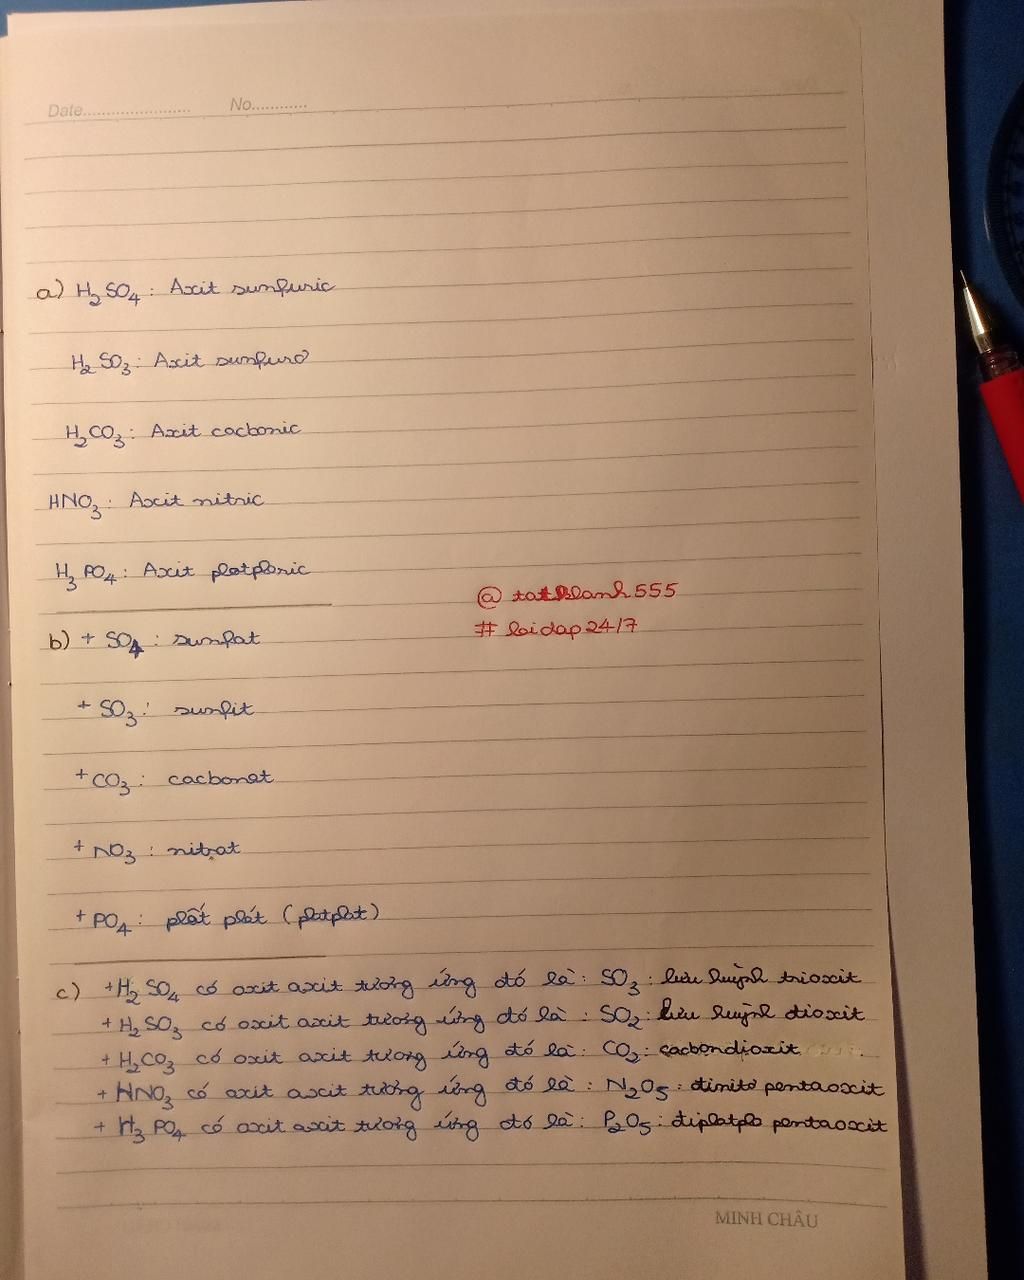 Date....................... No............
a) H₂SO₄ : Axit sunfuric
H₂SO₃ : Axit sunfurơ
H₂CO₃ : Axit cacbonic
HNO₃ : Axit nitric
H₃PO₄ : Axit photphoric
@ tatthanh555
# hoidap24/7
b) + SO₄ : sunfat
+ SO₃ : sunfit
+ CO₃ : cacbonat
+ NO₃ : nitrat
+ PO₄ : phốt phát (photphat)
c) + H₂SO₄ có oxit axit tương ứng đó là : SO₃ : lưu huỳnh trioxit
+ H₂SO₃ có oxit axit tương ứng đó là : SO₂ : lưu huỳnh đioxit
+ H₂CO₃ có oxit axit tương ứng đó là : CO₂ : cacbondioxit
+ HNO₃ có oxit axit tương ứng đó là : N₂O₅ : đinitơ pentaoxit
+ H₃PO₄ có oxit axit tương ứng đó là : P₂O₅ : điphotpho pentaoxit
MINH CHÂU